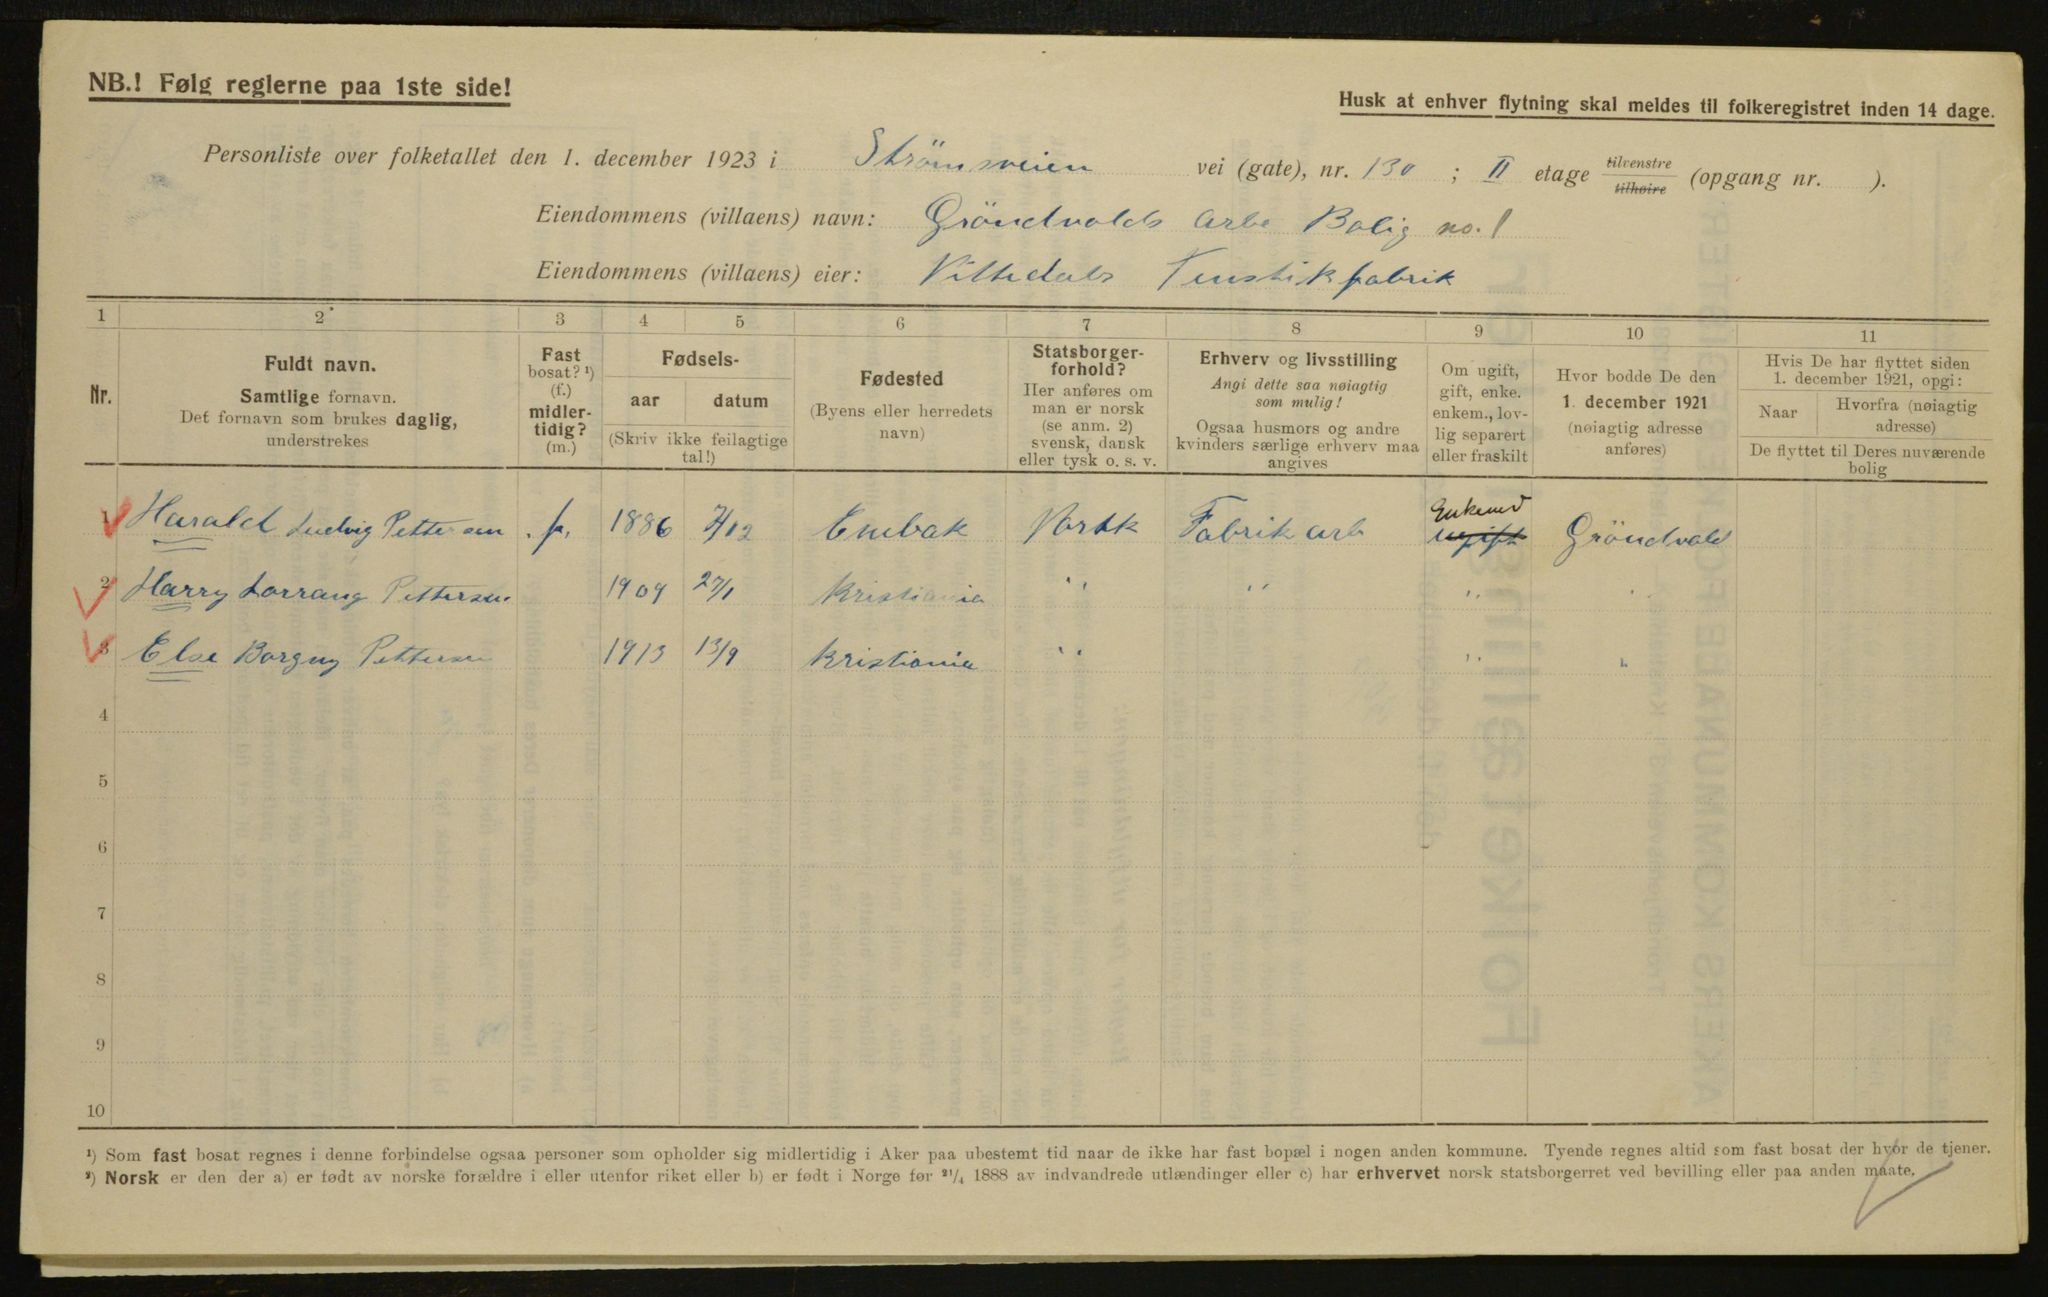 NB.! Følg reglerne paa 1ste side!
Husk at enhver flytning skal meldes til folkeregistret inden 14 dage.
Personliste over folketallet den 1. december 1923 i Strömsveien vei (gate), nr. 130 ; II etage tilvenstre tilhøire (opgang nr. ).
Eiendommens (villaens) navn: Gröndvolds Arbe Bolig no. 1
Eiendommens (villaens) eier: Nittedals Tenstikfabrik
1 2 3 4 5 6 7 8 9 10 11
Nr.
Fuldt navn.
Samtlige fornavn.
Det fornavn som brukes daglig,
understrekes
Fast
bosat? ¹)
(f.)
midler-
tidig?
(m.)
Fødsels-
aar datum
(Skriv ikke feilagtige
tal!)
Fødested
(Byens eller herredets
navn)
Statsborger-
forhold?
Her anføres om
man er norsk
(se anm. 2)
svensk, dansk
eller tysk o. s. v.
Erhverv og livsstilling
Angi dette saa nøiagtig
som mulig!
Ogsaa husmors og andre
kvinders særlige erhverv maa
angives
Om ugift,
gift, enke.
enkem., lov-
lig separert
eller fraskilt
Hvor bodde De den
1. december 1921
(nøiagtig adresse
anføres)
Hvis De har flyttet siden
1. december 1921, opgi:
Naar
Hvorfra (nøiagtig
adresse)
De flyttet til Deres nuværende
bolig
1 Harald Ludvig Pettersen f. 1886 7/12 Enebak Norsk Fabrik arb Enkemd ugift Gröndvold
2 Harry Lorrang Pettersen 1909 27/1 Kristiania " " " "
3 Else Borgny Pettersen 1913 13/9 Kristiania " " "
4
5
6
7
8
9
10
¹) Som fast bosat regnes i denne forbindelse ogsaa personer som opholder sig midlertidig i Aker paa ubestemt tid naar de ikke har fast bopæl i nogen anden kommune. Tyende regnes altid som fast bosat der hvor de tjener.
²) Norsk er den der a) er født av norske forældre i eller utenfor riket eller b) er født i Norge før ²¹/₄ 1888 av indvandrede utlændinger eller c) har erhvervet norsk statsborgerret ved bevilling eller paa anden maate.